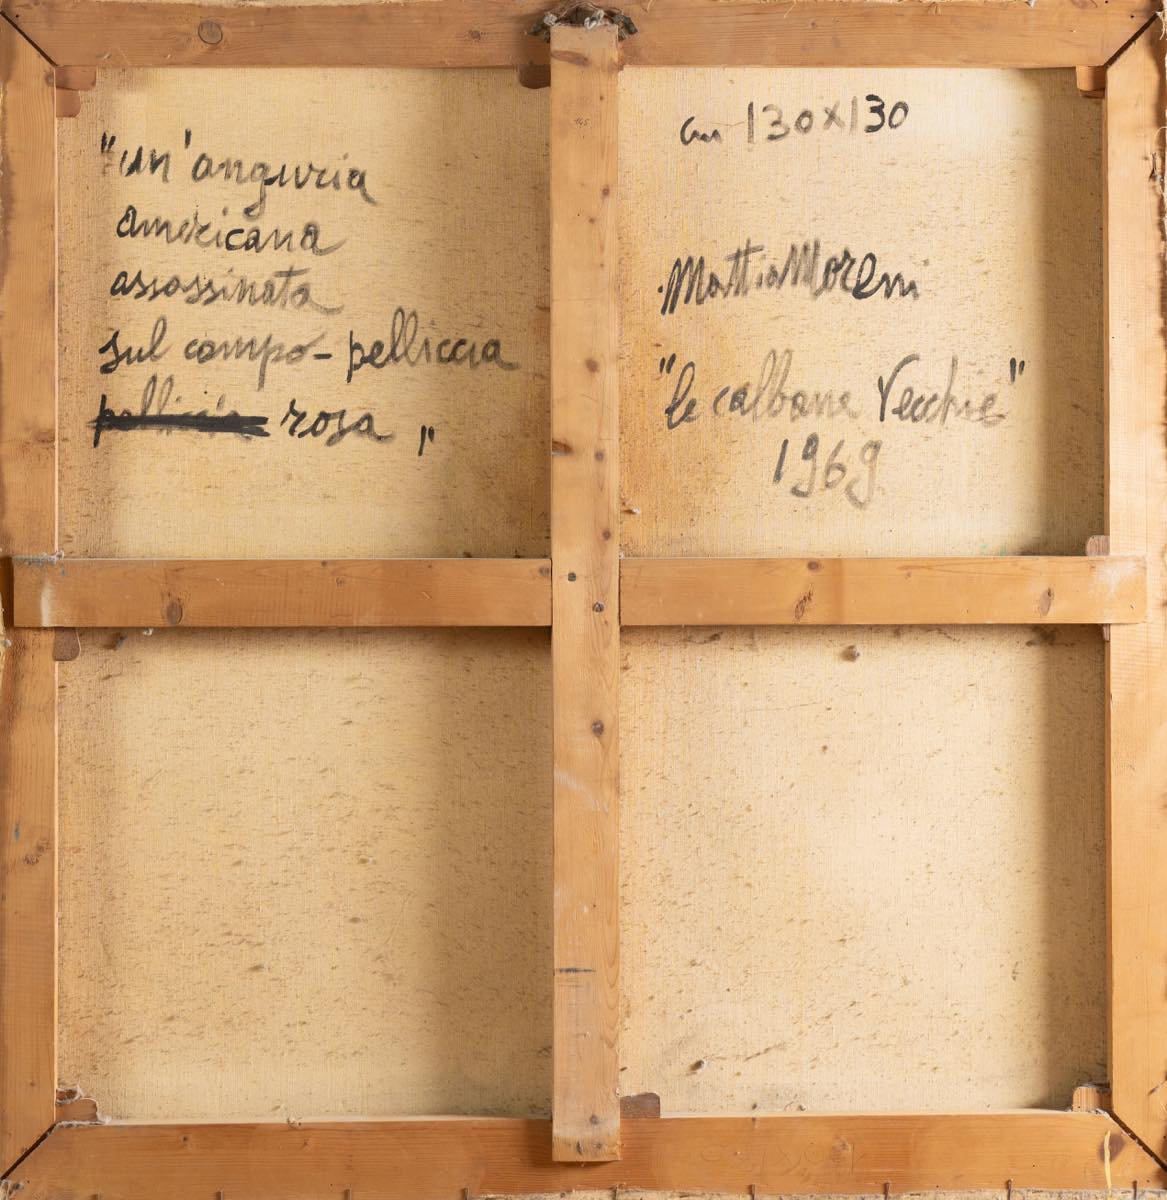 "un'anguria
americana
assassinata
sul campo-pelliccia
pelliccia rosa"
cm 130x130
Mattia Moreni
"le calbane Vecchie"
1969
145